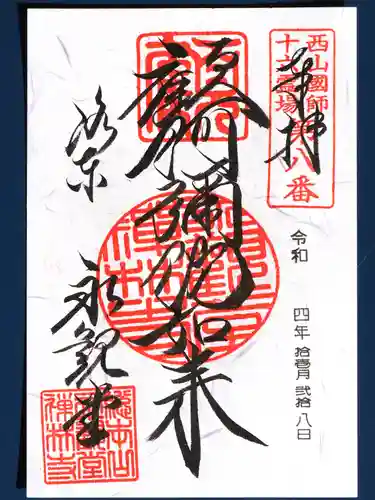 西山國師
十六霊場
第八番
奉拝
令和 四年 拾壹月 弐拾八日
阿彌陀如来
洛東
永観堂
總本山
永観堂
禅林寺